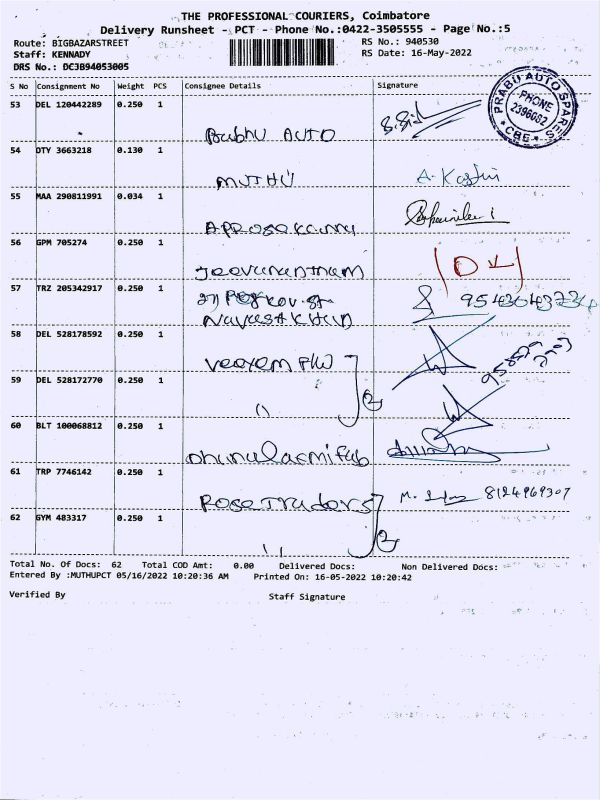 THE PROFESSIONAL COURIERS, Coimbatore
Delivery Runsheet - PCT - Phone No.:0422-3505555 - Page No.:5
Route: BIGBAZARSTREET
RS No.: 940530
Staff: KENNADY
RS Date: 16-May-2022
DRS No.: DCJB94053005
S No Consignment No Weight PCS Consignee Details Signature
PRABU AUTO SPARES
PHONE
2396082
* CBE *
53 DEL 120442289 0.250 1
Prabhu AUTO
54 DTY 3663218 0.130 1
MUTHU A. Kasturi
55 MAA 290811991 0.034 1
56 GPM 705274 0.250 1
Jeevanantham
57 TRZ 205342917 0.250 1
58 DEL 528178592 0.250 1
59 DEL 528172770 0.250 1
2
60 BLT 100068812 0.250 1
61 TRP 7746142 0.250 1
Rose Traders M. 8124969307
62 GYM 483317 0.250 1
2
Total No. Of Docs: 62 Total COD Amt: 0.00 Delivered Docs: Non Delivered Docs:
Entered By :MUTHUPCT 05/16/2022 10:20:36 AM Printed On: 16-05-2022 10:20:42
Verified By Staff Signature